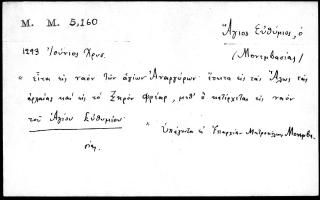 M. M. 5,160
Ἅγιος Εὐθύμιος, ὁ
/Μονεμβασίας/
1293 Ἰούνιος Χρυς.
" εἶτα εἰς ναὸν τῶν ἁγίων Ἀναργύρων ἔπειτα εἰς τὰς Ἅλως τὰς
ἀρχαίας καὶ εἰς τὸ Ξηρὸν φρέαρ, μεθ' ὃ κατέρχεται εἰς ναὸν
τοῦ Ἁγίου Εὐθυμίου.
" Ὑπάγονται Μητροπόλεως Μονεμβα.